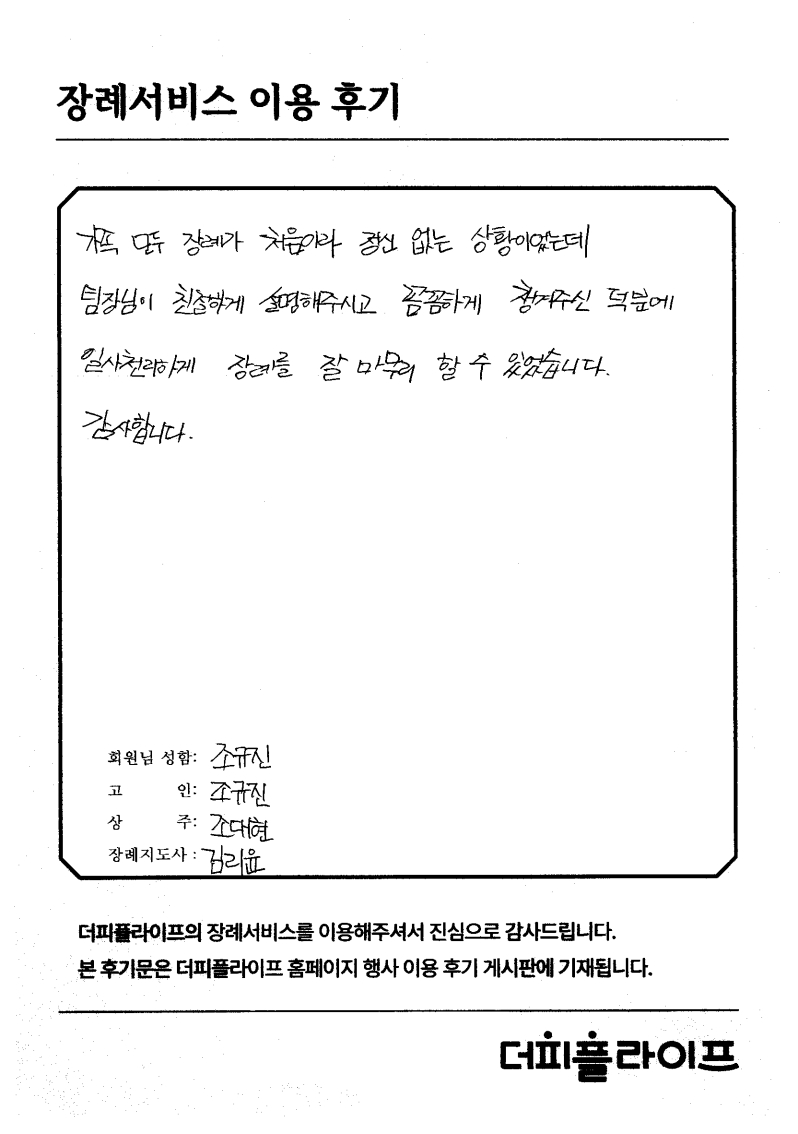 장례서비스 이용 후기
가족 모두 장례가 처음이라 정신 없는 상황이었는데
팀장님이 친절하게 설명해주시고 꼼꼼하게 챙겨주신 덕분에
일사천리하게 장례를 잘 마무리 할 수 있었습니다.
감사합니다.
회원님 성함: 조규진
고 인: 조규진
상 주: 조대현
장례지도사 : 김리윤
더피플라이프의 장례서비스를 이용해주셔서 진심으로 감사드립니다.
본 후기문은 더피플라이프 홈페이지 행사 이용 후기 게시판에 기재됩니다.
더피플라이프